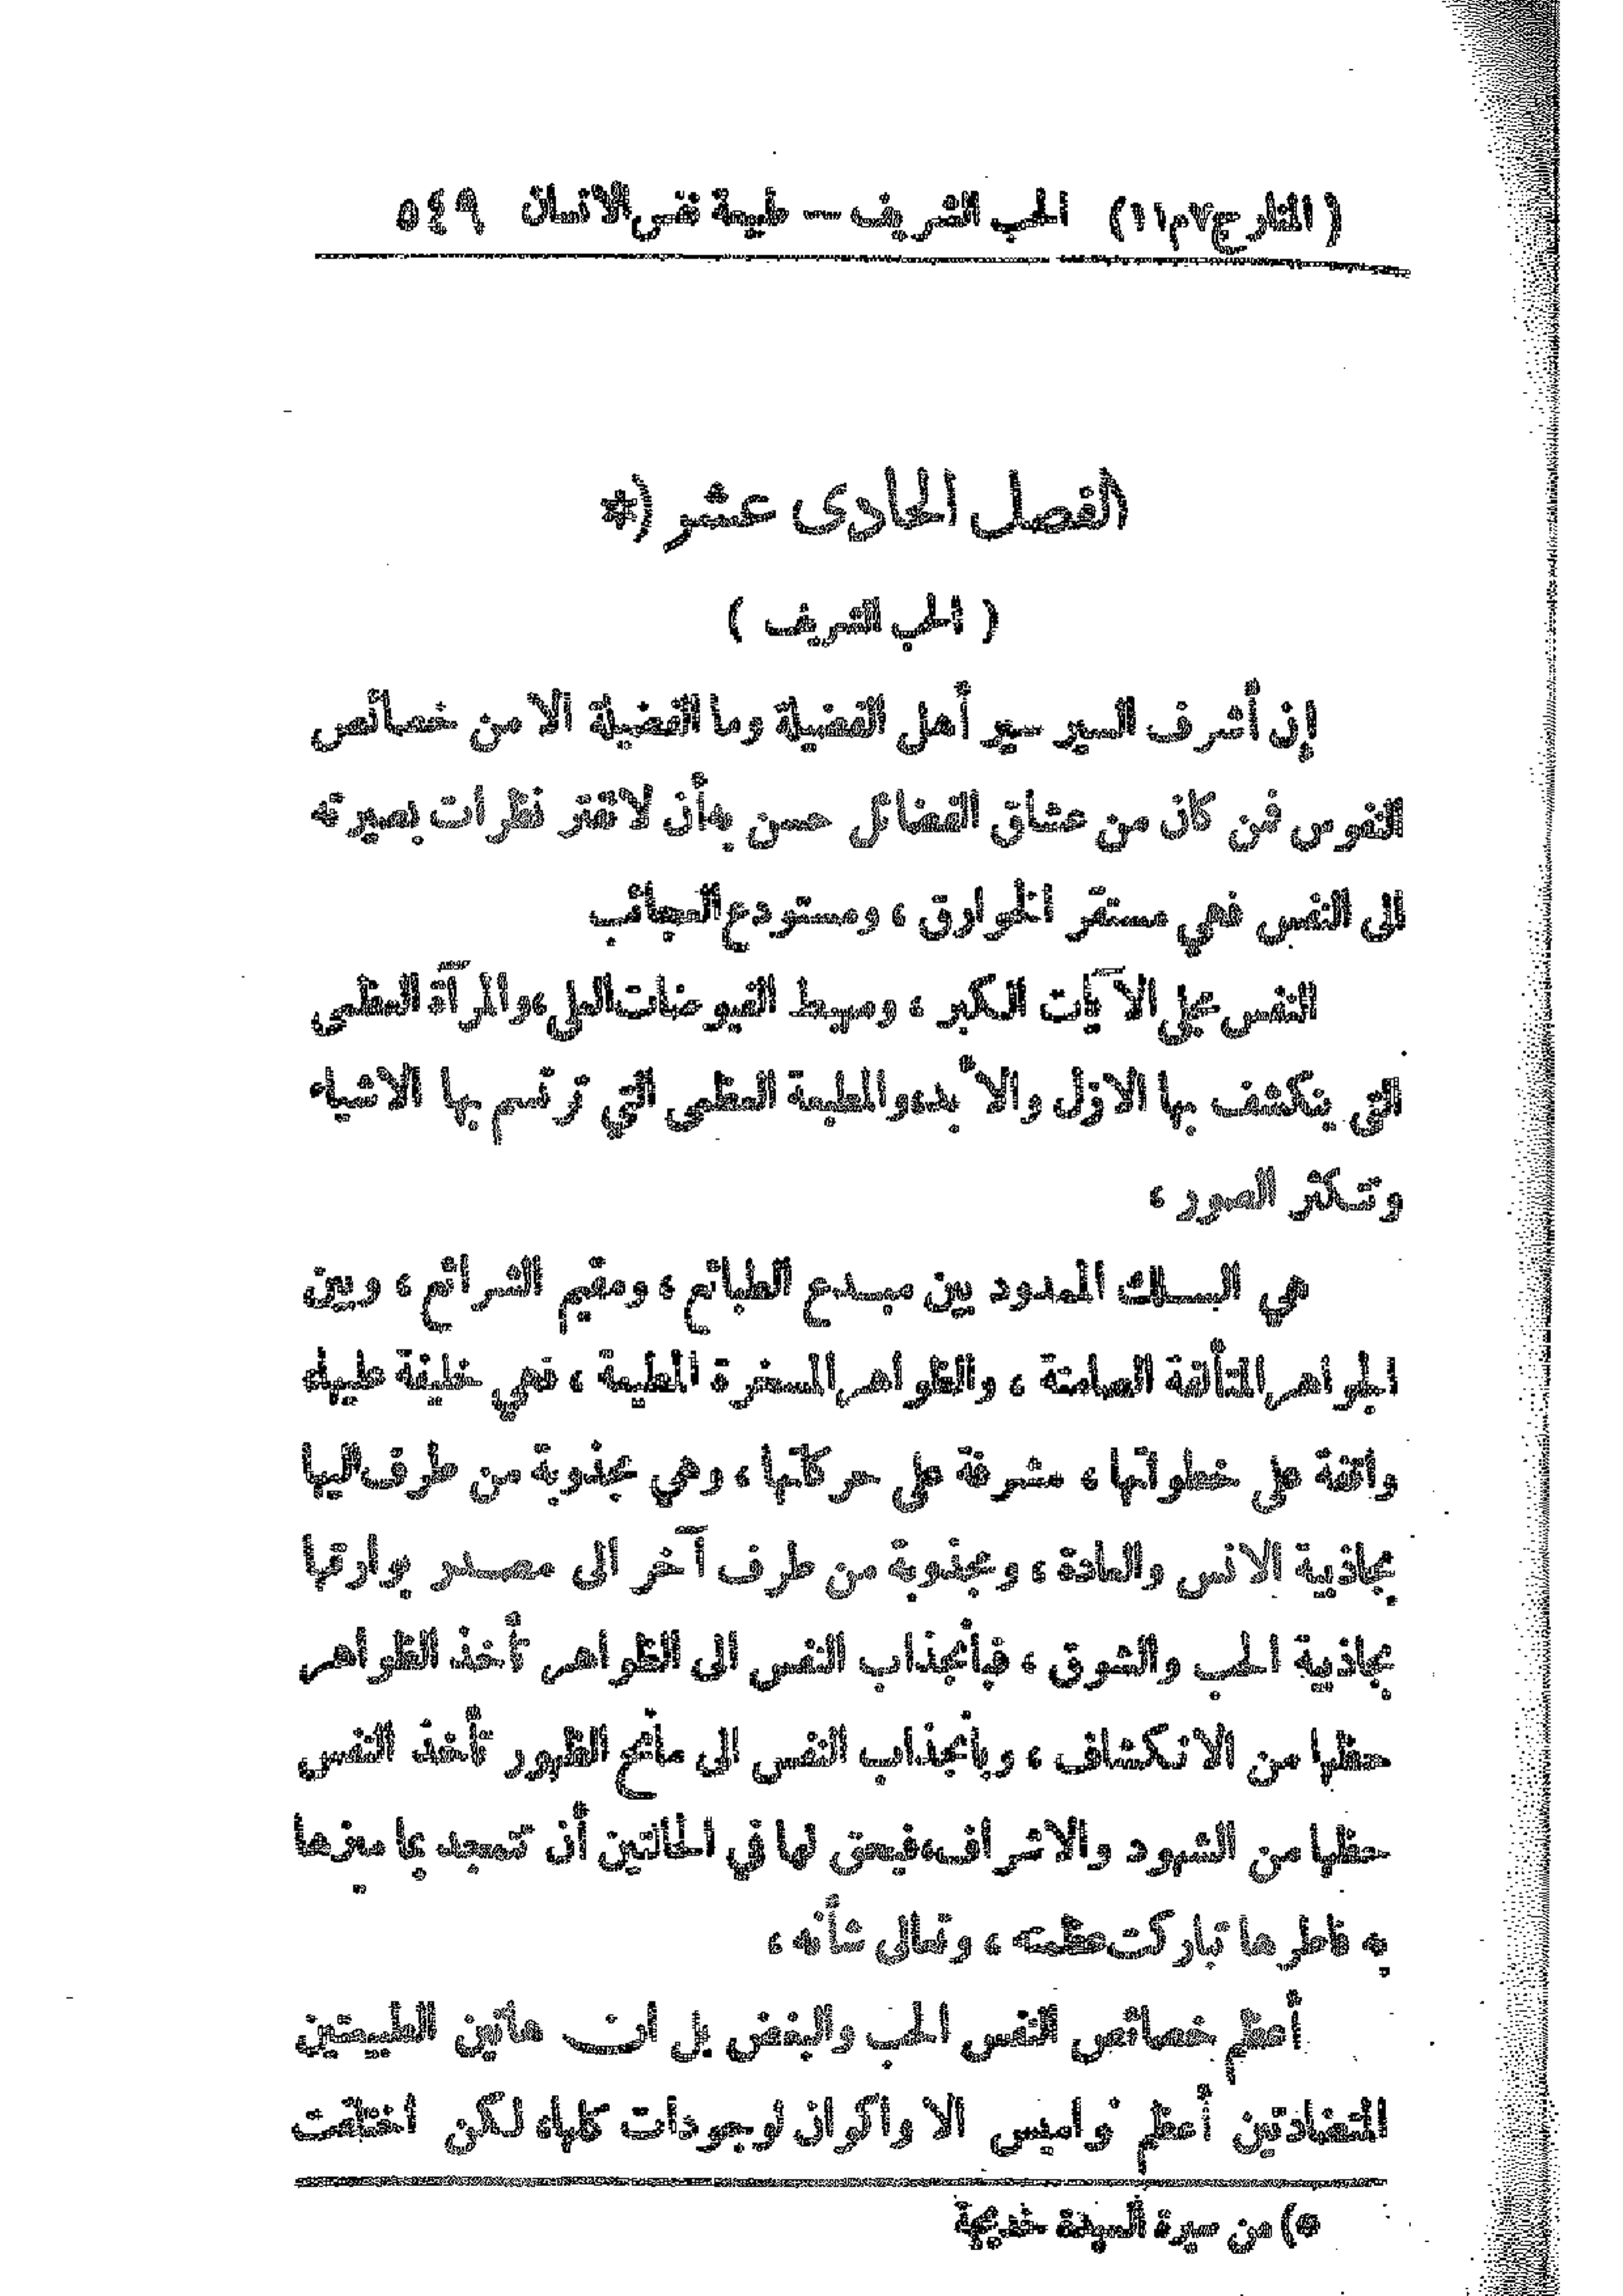 (المنار ج٧م١١) الحب الشريف — طبيعة نفس الانسان ٥٤٩
الفصل الحادى عشر (*
( الحب الشريف )
إن أشرف السير سير أهل الفضيلة وما الفضيلة الا من خصائص
النفوس فمن كان من عشاق الفضائل حسن به أن لا تفتر نظرات بصيرته
الى النفس فهي مستقر الخوارق ، ومستودع العجائب
النفس مجلى الآيات الكبر ، ومهبط الفيوضات العلى، والمرآة العظمى
التي ينكشف بها الازل والأبد، والمطبعة العظمى التي ترتسم بها الاشياء
وتتكثر الصور ،
هي السلك الممدود بين مبدع الطبائع ، ومقيم الشرائع ، وبين
الجواهر المتألقة الصامتة ، والظواهر المسخرة المطيعة ، فهي خليفة عليها،
واقفة على خطواتها ، مشرفة على حركاتها ، وهي مجذوبة من طرف اليها
بجاذبية الانس والعادة ، ومجذوبة من طرف آخر الى مصدر بوارقها
بجاذبية الحب والشوق ، فبأنجذاب النفس الى الظواهر تأخذ الظواهر
حظها من الانكشاف ، وبأنجذاب النفس الى مانح الظهور تأخذ النفس
حظها من الشهود والاشراف، فيحق لها في الحالتين أن تمجد بما ميزها
به فاطرها تباركت عظمته ، وتعالى شأنه ،
أعظم خصائص النفس الحب والبغض بل ان هاتين الطبيعتين
المتضادتين أعظم نواميس الا واكوان لوجودات كلها، لكن اختلفت
*) من سيرة السيدة خديجة